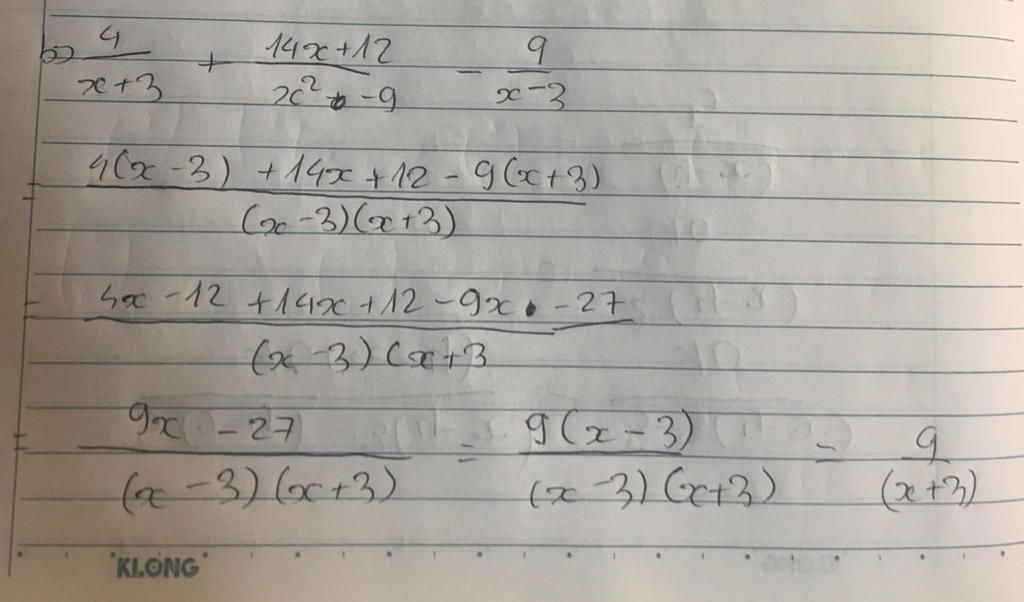 b) 4/(x+3) + (14x+12)/(x² -9) - 9/(x-3)
= (4(x-3) +14x+12-9(x+3))/((x-3)(x+3))
= (4x-12 +14x+12-9x -27)/((x-3)(x+3)
= (9x -27)/((x-3)(x+3)) = (9(x-3))/((x-3)(x+3)) = 9/((x+3))
KLONG